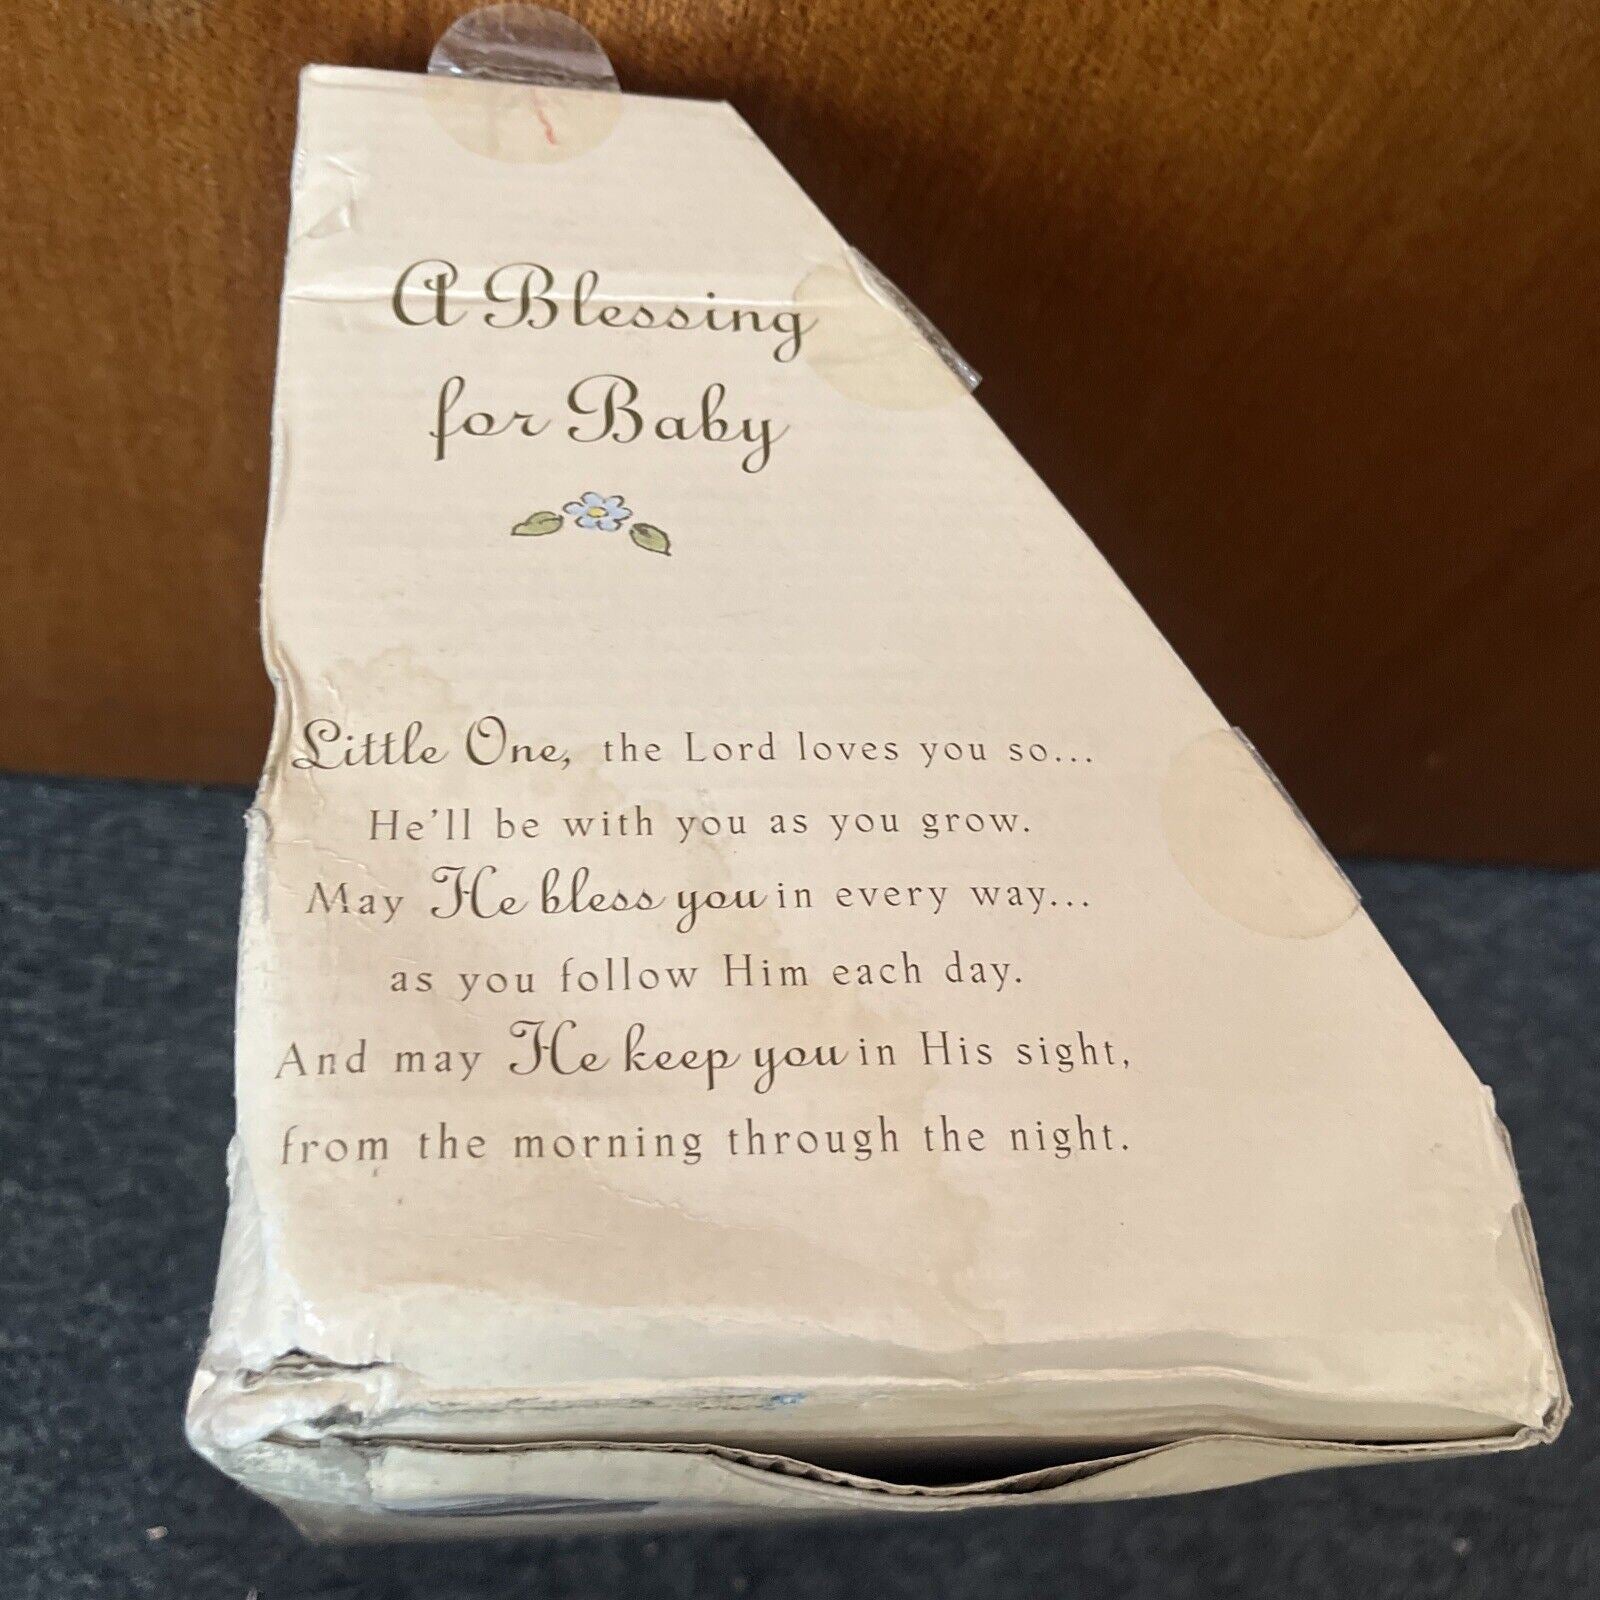 A Blessing
for Baby
Little One, the Lord loves you so...
He'll be with you as you grow.
May He bless you in every way...
as you follow Him each day.
And may He keep you in His sight,
from the morning through the night.